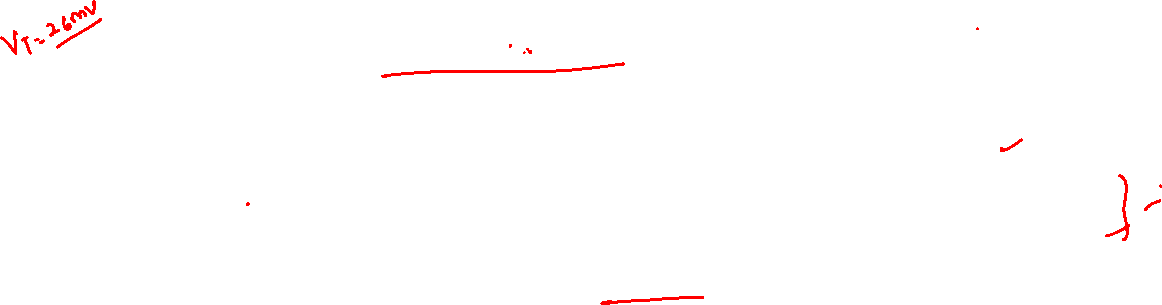 VT = 26mV